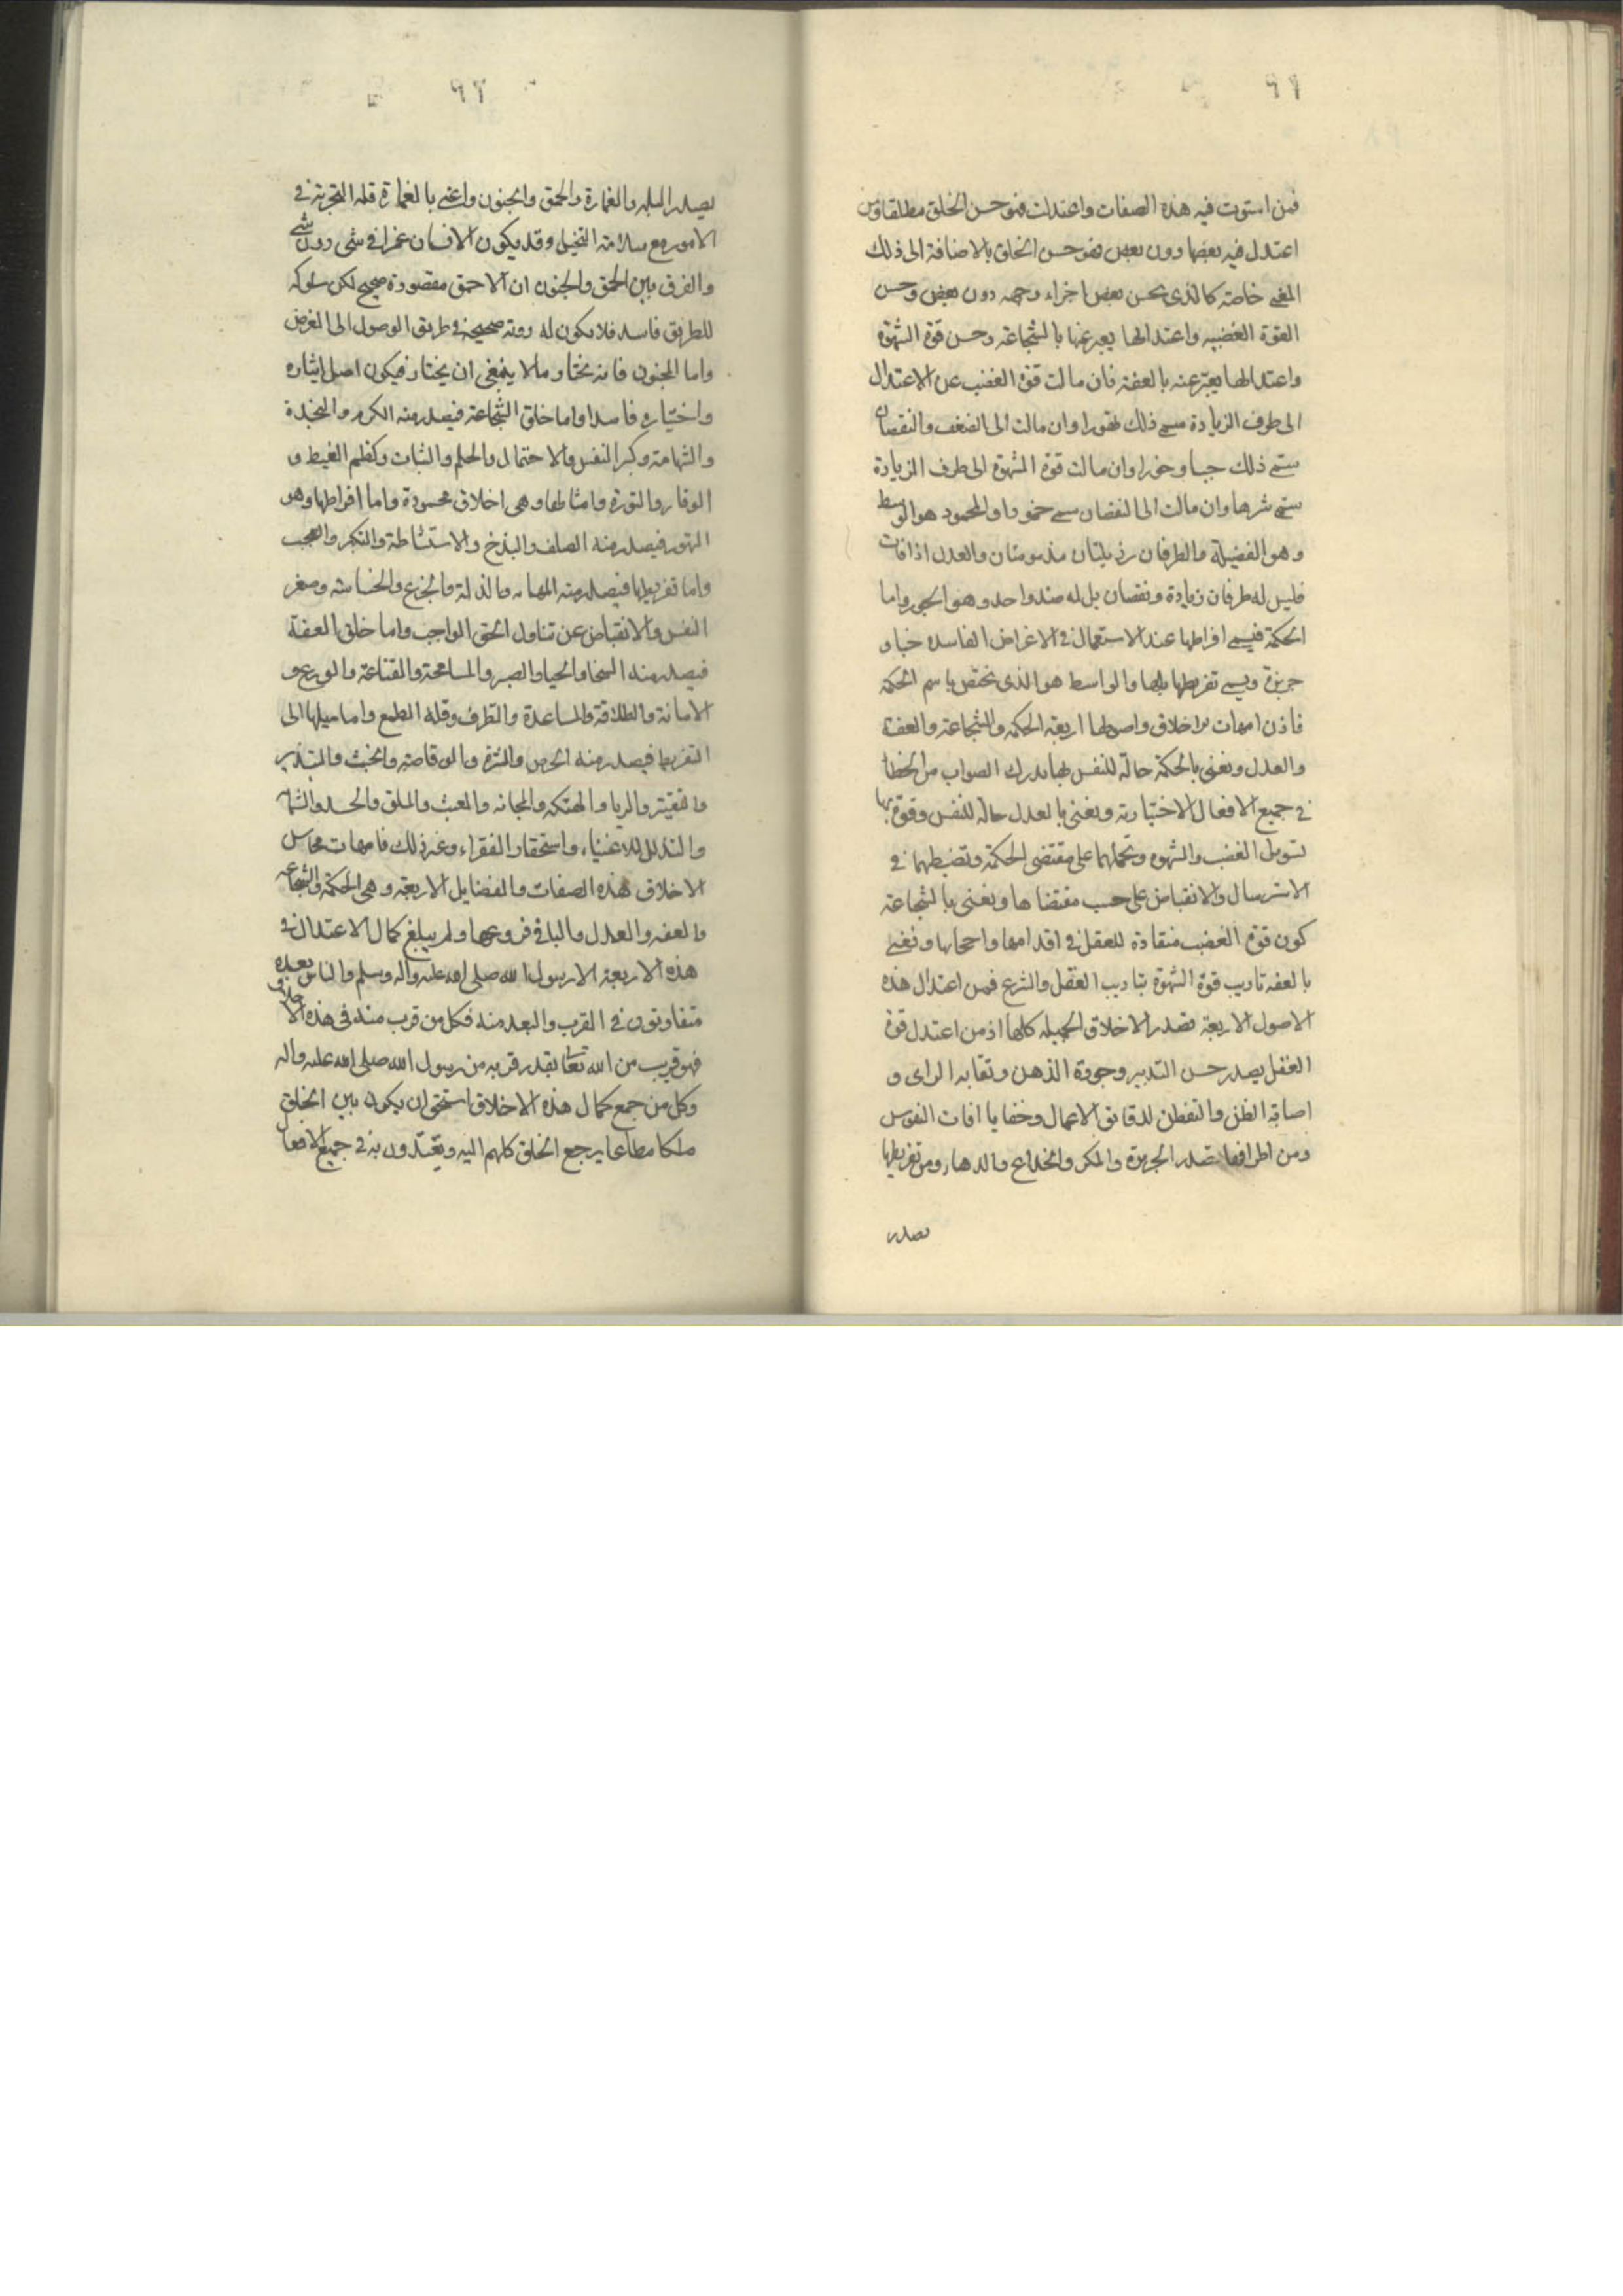 ٩٦
فمن استوت فيه هذه الصفات واعتدلت فهو حسن الخلق مطلقا ومن
اعتدل فيه بعضها دون بعض فهو حسن الخلق بالاضافة الى ذلك
المعنى خاصة كالذى يحسن بعض اجزاء وجهه دون بعض وحسن
القوة الغضبيه واعتدالها يعبر عنها بالشجاعة وحسن قوة الشهوة
واعتدالها يعبر عنه بالعفة فان مالت قوة الغضب عن الاعتدال
الى طرف الزيادة سمى ذلك تهورا وان مالت الى الضعف والنقصان
سمى ذلك جبنا وخورا وان مالت قوة الشهوة الى طرف الزيادة
سمى شرها وان مالت الى النقصان سمى خمودا والمحمود هو الوسط
وهو الفضيلة والطرفان رذيلتان مذمومتان والعدل اذا فات
فليس له طرفان زيادة ونقصان بل له ضد واحد وهو الجور واما
الحكمة فيسمى افراطها عند الاستعمال فى الاغراض الفاسده خبا و
جربزة ويسمى تفريطها بلها والواسط هو الذى يختص باسم الحكمة
فاذن امهات الاخلاق واصولها اربعة الحكمة والشجاعة والعفة
والعدل ونعنى بالحكمة حالة للنفس بها يدرك الصواب من الخطا
فى جميع الافعال الاختيارية ونعنى بالعدل حالة للنفس وقوة بها
تسوس الغضب والشهوه وتحملهما على مقتضى الحكمة وتضبطهما فى
الاسترسال والانقباض على حسب مقتضاها ونعنى بالشجاعة
كون قوة الغضب منقادة للعقل فى اقدامها واحجامها ونعنى
بالعفه تاديب قوة الشهوة بتاديب العقل والشرع فمن اعتدال هذه
الاصول الاربعة تصدر الاخلاق الجميله كلها اذ من اعتدل قوة
العقل يصدر حسن التدبير وجودة الذهن وثقابه الراى و
اصابة الظن والتفطن لدقائق الاعمال وخفايا افات النفوس
ومن افراطها تصدر الجربزة والمكر والخداع والدهاء ومن تفريطها
تصدر
٩٧
يصدر البله والغمارة والحمق والجنون واعنى بالغمارة قلة التجربة فى
الامور مع سلامة التخيل وقد يكون الانسان غمرا فى شى دون شى
والفرق بين الحمق والجنون ان الاحمق مقصوده صحيح لكن سلوكه
للطريق فاسد فلا يكون له روية صحيحة فى طريق الوصول الى الغرض
واما المجنون فانه يختار ما لا ينبغى ان يختار فيكون اصل ايثاره
واختياره فاسدا واما خلق الشجاعة فيصدر منه الكرم والنجدة
والشهامة وكبر النفس والاحتمال والحلم والثبات وكظم الغيظ و
الوقار والتودة وامثالها وهى اخلاق محمودة واما افراطها وهو
التهور فيصدر منه الصلف والبذخ والاستشاطة والتكبر والعجب
واما تفريطها فيصدر منه المهانه والذلة والجزع والخساسة وصغر
النفس والانقباض عن تناول الحق الواجب واما خلق العفة
فيصدر منه السخا والحيا والصبر والمسامحة والقناعة والورع و
الامانة والطلاقة والمساعدة والظرف وقلة الطمع واما ميلها الى
التفريط فيصدر منه الحرص والشره والوقاحة والخبث والتبذير
والتقتير والريا والهتكة والمجانة والعبث والملق والحسد والشماتة
والتذلل للاغنياء واستحقار الفقراء وغير ذلك فامهات محاسن
الاخلاق هذه الصفات والفضايل الاربعة وهى الحكمة والشجاعة
والعفه والعدل والباقى فروعها ولم يبلغ كمال الاعتدال فى
هذه الاربعة الا رسول الله صلى الله عليه واله وسلم والناس بعده
متفاوتون فى القرب والبعد منه فكل من قرب منه فى هذه الاخلاق
فهو قريب من الله تعا بقدر قربه من رسول الله صلى الله عليه واله
وكل من جمع كمال هذه الاخلاق استحق ان يكون بين الخلق
ملكا مطاعا يرجع الخلق كلهم اليه ويقتدون به فى جميع الافعال